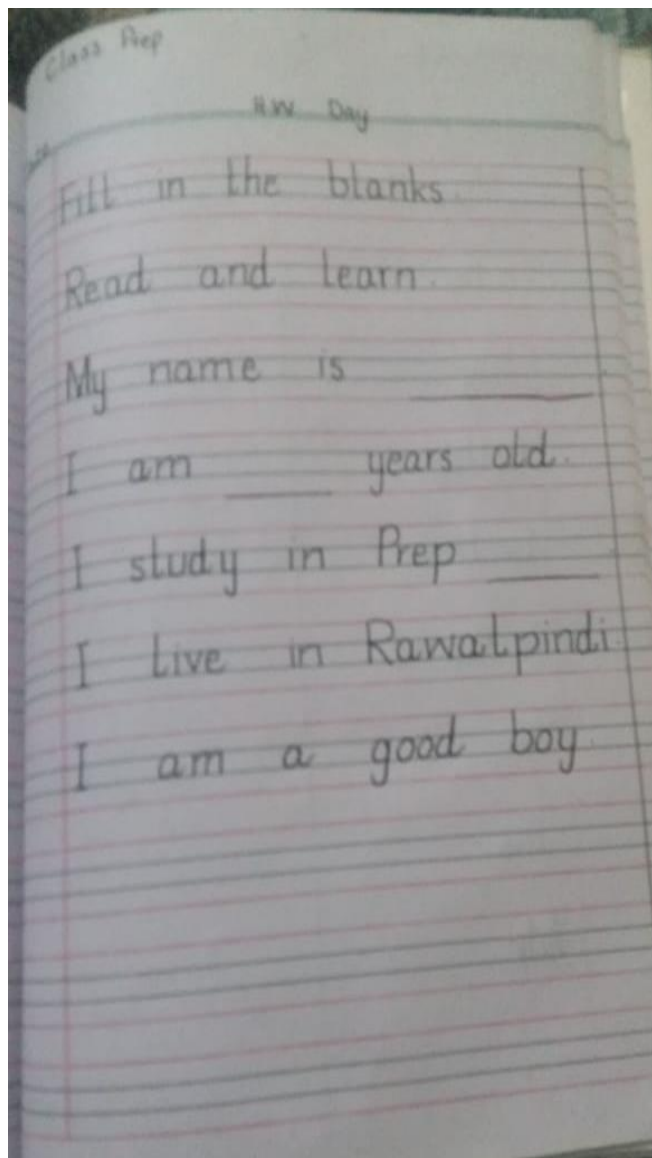 Class Prep
H.W Day
Fill in the blanks.
Read and learn.
My name is ________
I am ____ years old.
I study in Prep ____
I live in Rawalpindi.
I am a good boy.